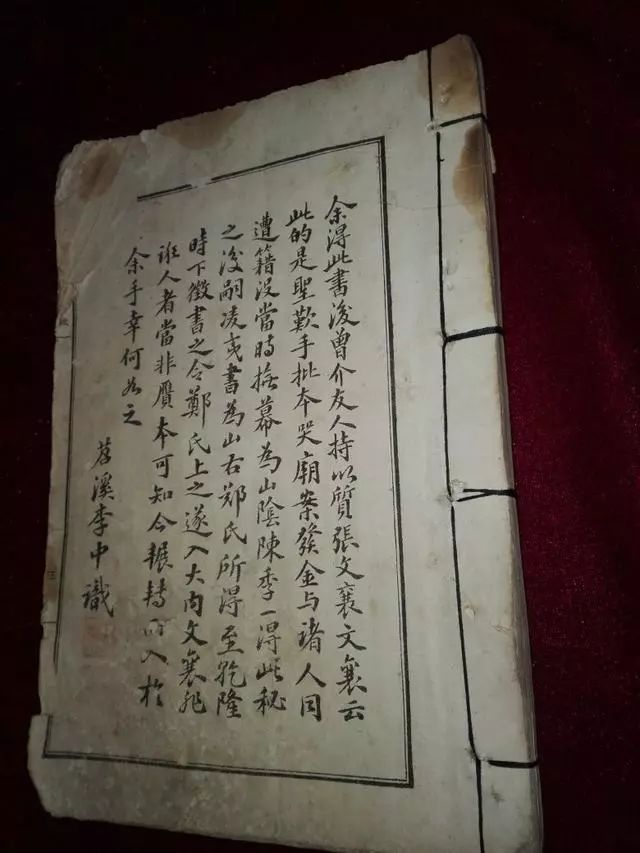 余得此書後曾介友人持以質張文襄文襄云
此的是聖歎手批本哭廟案發金与诸人同
遭籍没當時撫幕為山陰陳季一得此秘
之後嗣凌夷書為山右郑氏所得至乾隆
時下徵書之令鄭氏上之遂入大内文襄非
誑人者當非贋本可知今輾轉而入於
余手幸何如之
苕溪李中識